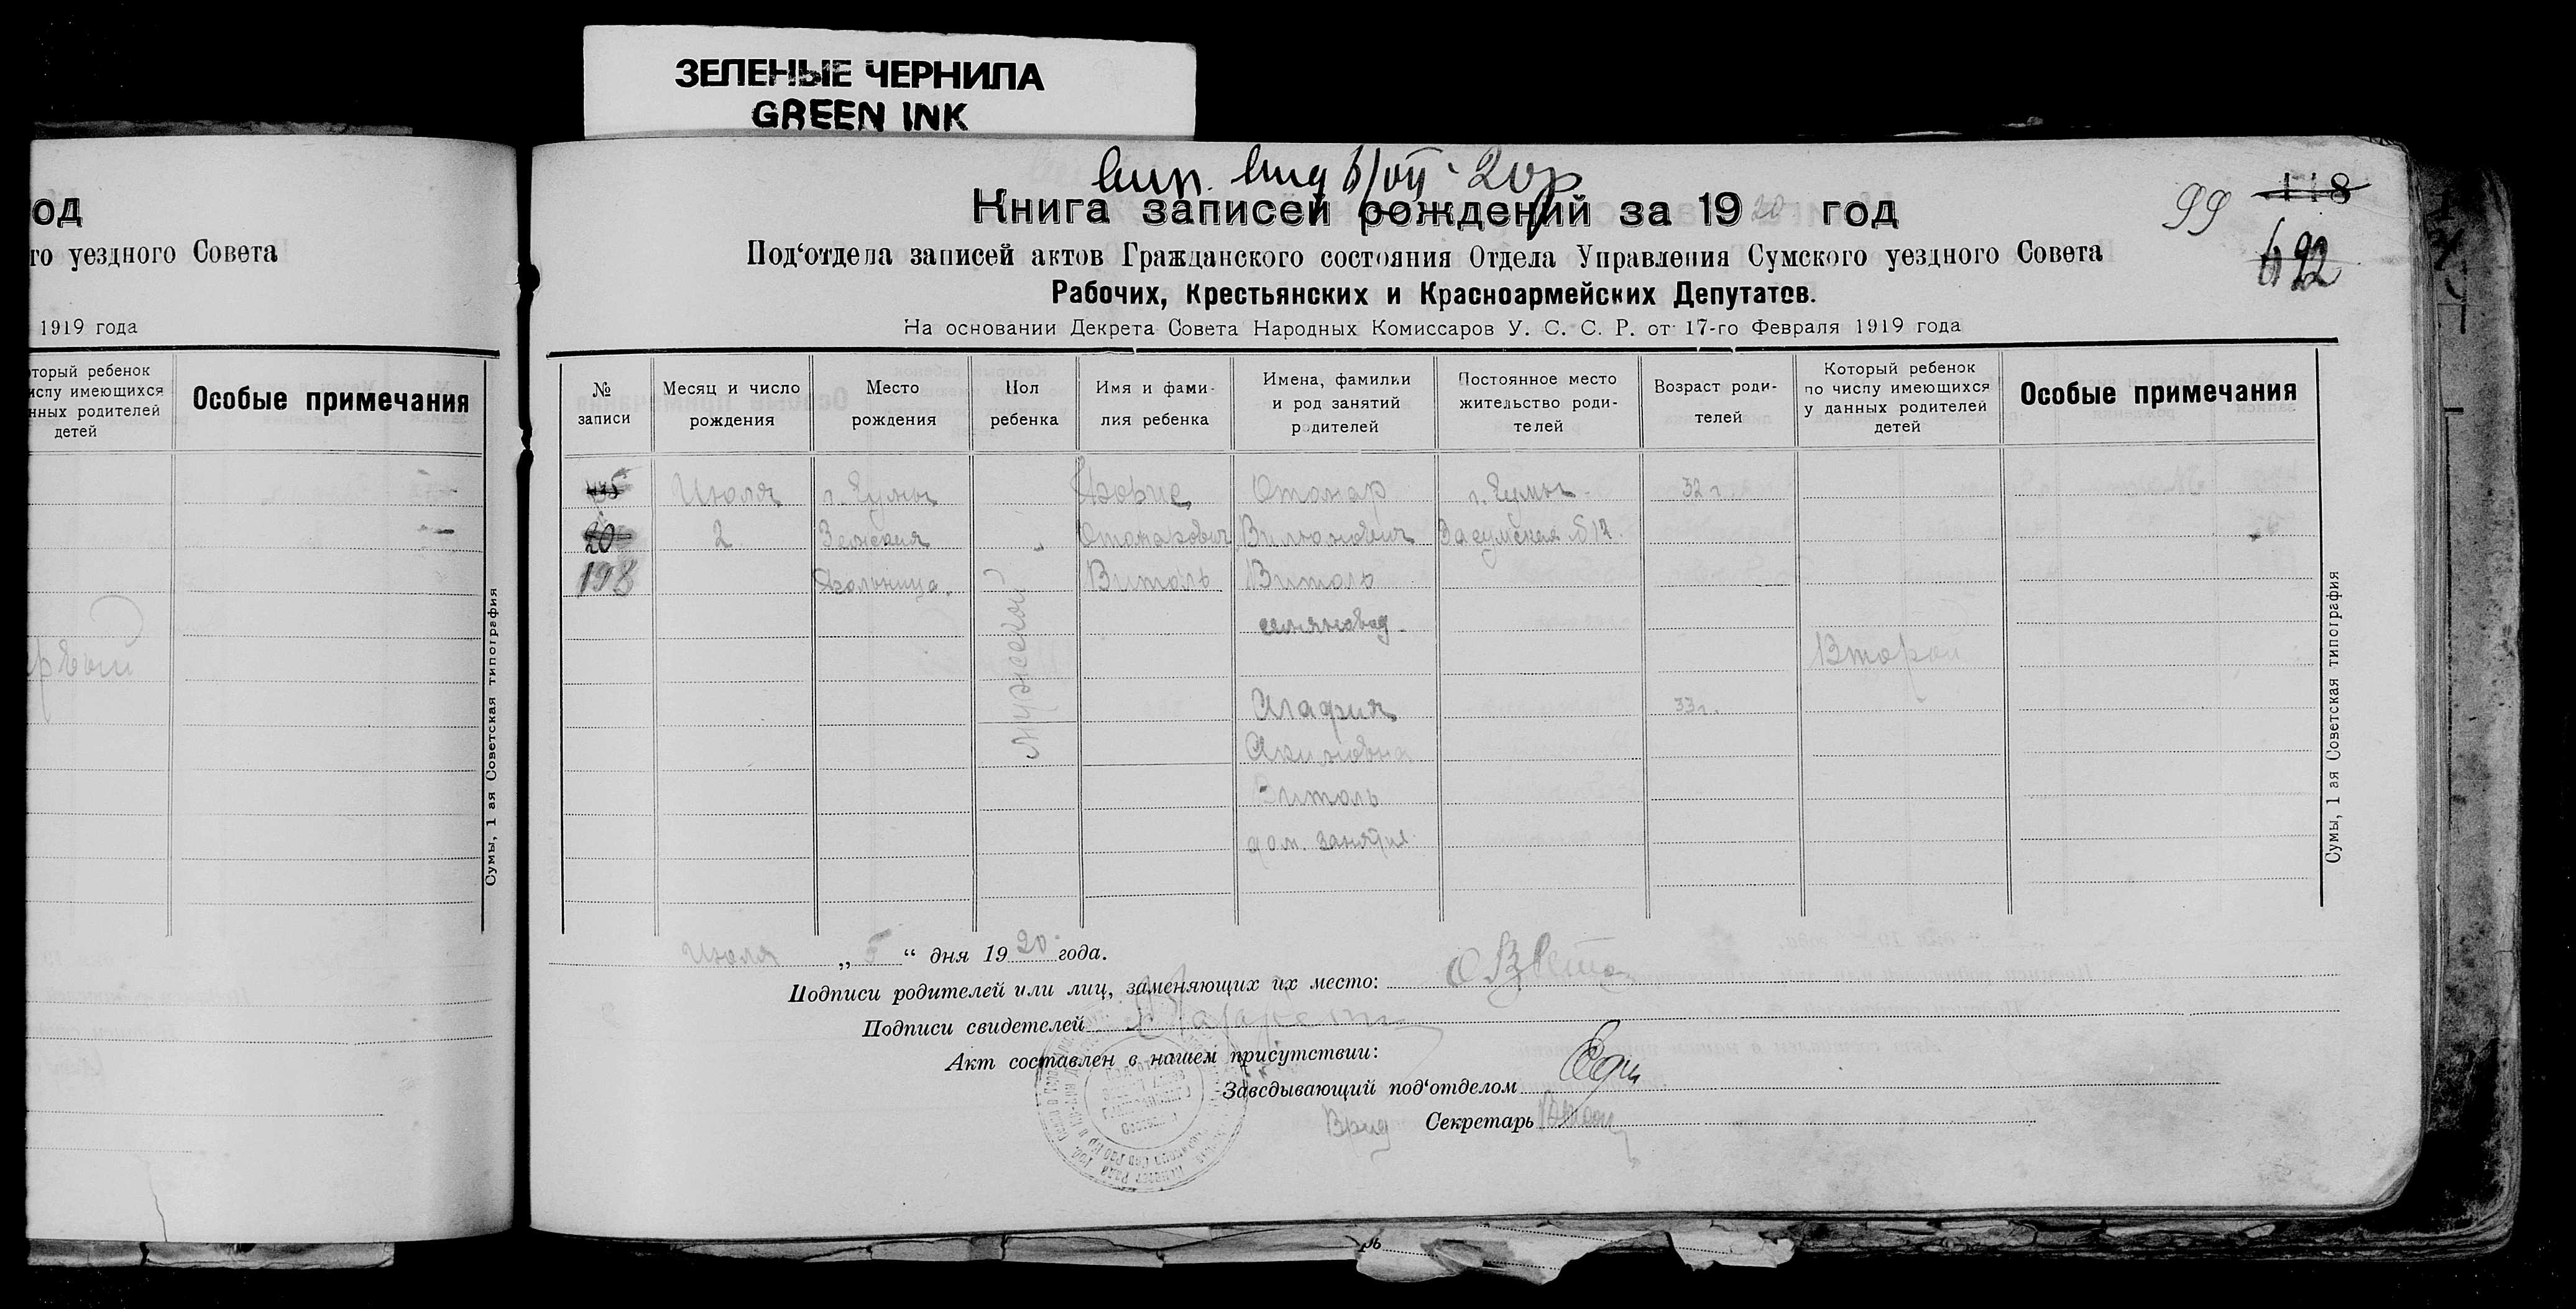 ЗЕЛЕНЫЕ ЧЕРНИЛА
GREEN INK
од
го уездного Совета
1919 года
оторый ребенок
числу имеющихся
нных родителей
детей
Особые примечания
Сумы, 1 ая Советская типография
6/VII-20
Книга записей рождений за 1920 год
99
118
692
Под‘отдела записей актов Гражданского состояния Отдела Управления Сумского уездного Совета
Рабочих, Крестьянских и Красноармейских Депутатов.
На основании Декрета Совета Народных Комиссаров У. С. С. Р. от 17-го Февраля 1919 года
№ записи
Месяц и число рождения
Место рождения
Пол ребенка
Имя и фамилия ребенка
Имена, фамилии и род занятий родителей
Постоянное место жительство родителей
Возраст родителей
Который ребенок по числу имеющихся у данных родителей детей
Особые примечания
20
198
Июля
2
г. Сумы
Земская
больница.
Мужской
Отомарович
Витоль
Отомар
Витоль
Агафия
Акимовна
Витоль
дом. занятия
г. Сумы
Засумская
32 г.
33 г.
Второй
Сумы, 1 ая Советская типография
Июля „ 5 “ дня 1920 года.
Подписи родителей или лиц, заменяющих их место:
Подписи свидетелей
Акт составлен в нашем присутствии:
Заведывающий под‘отделом
Врид Секретарь